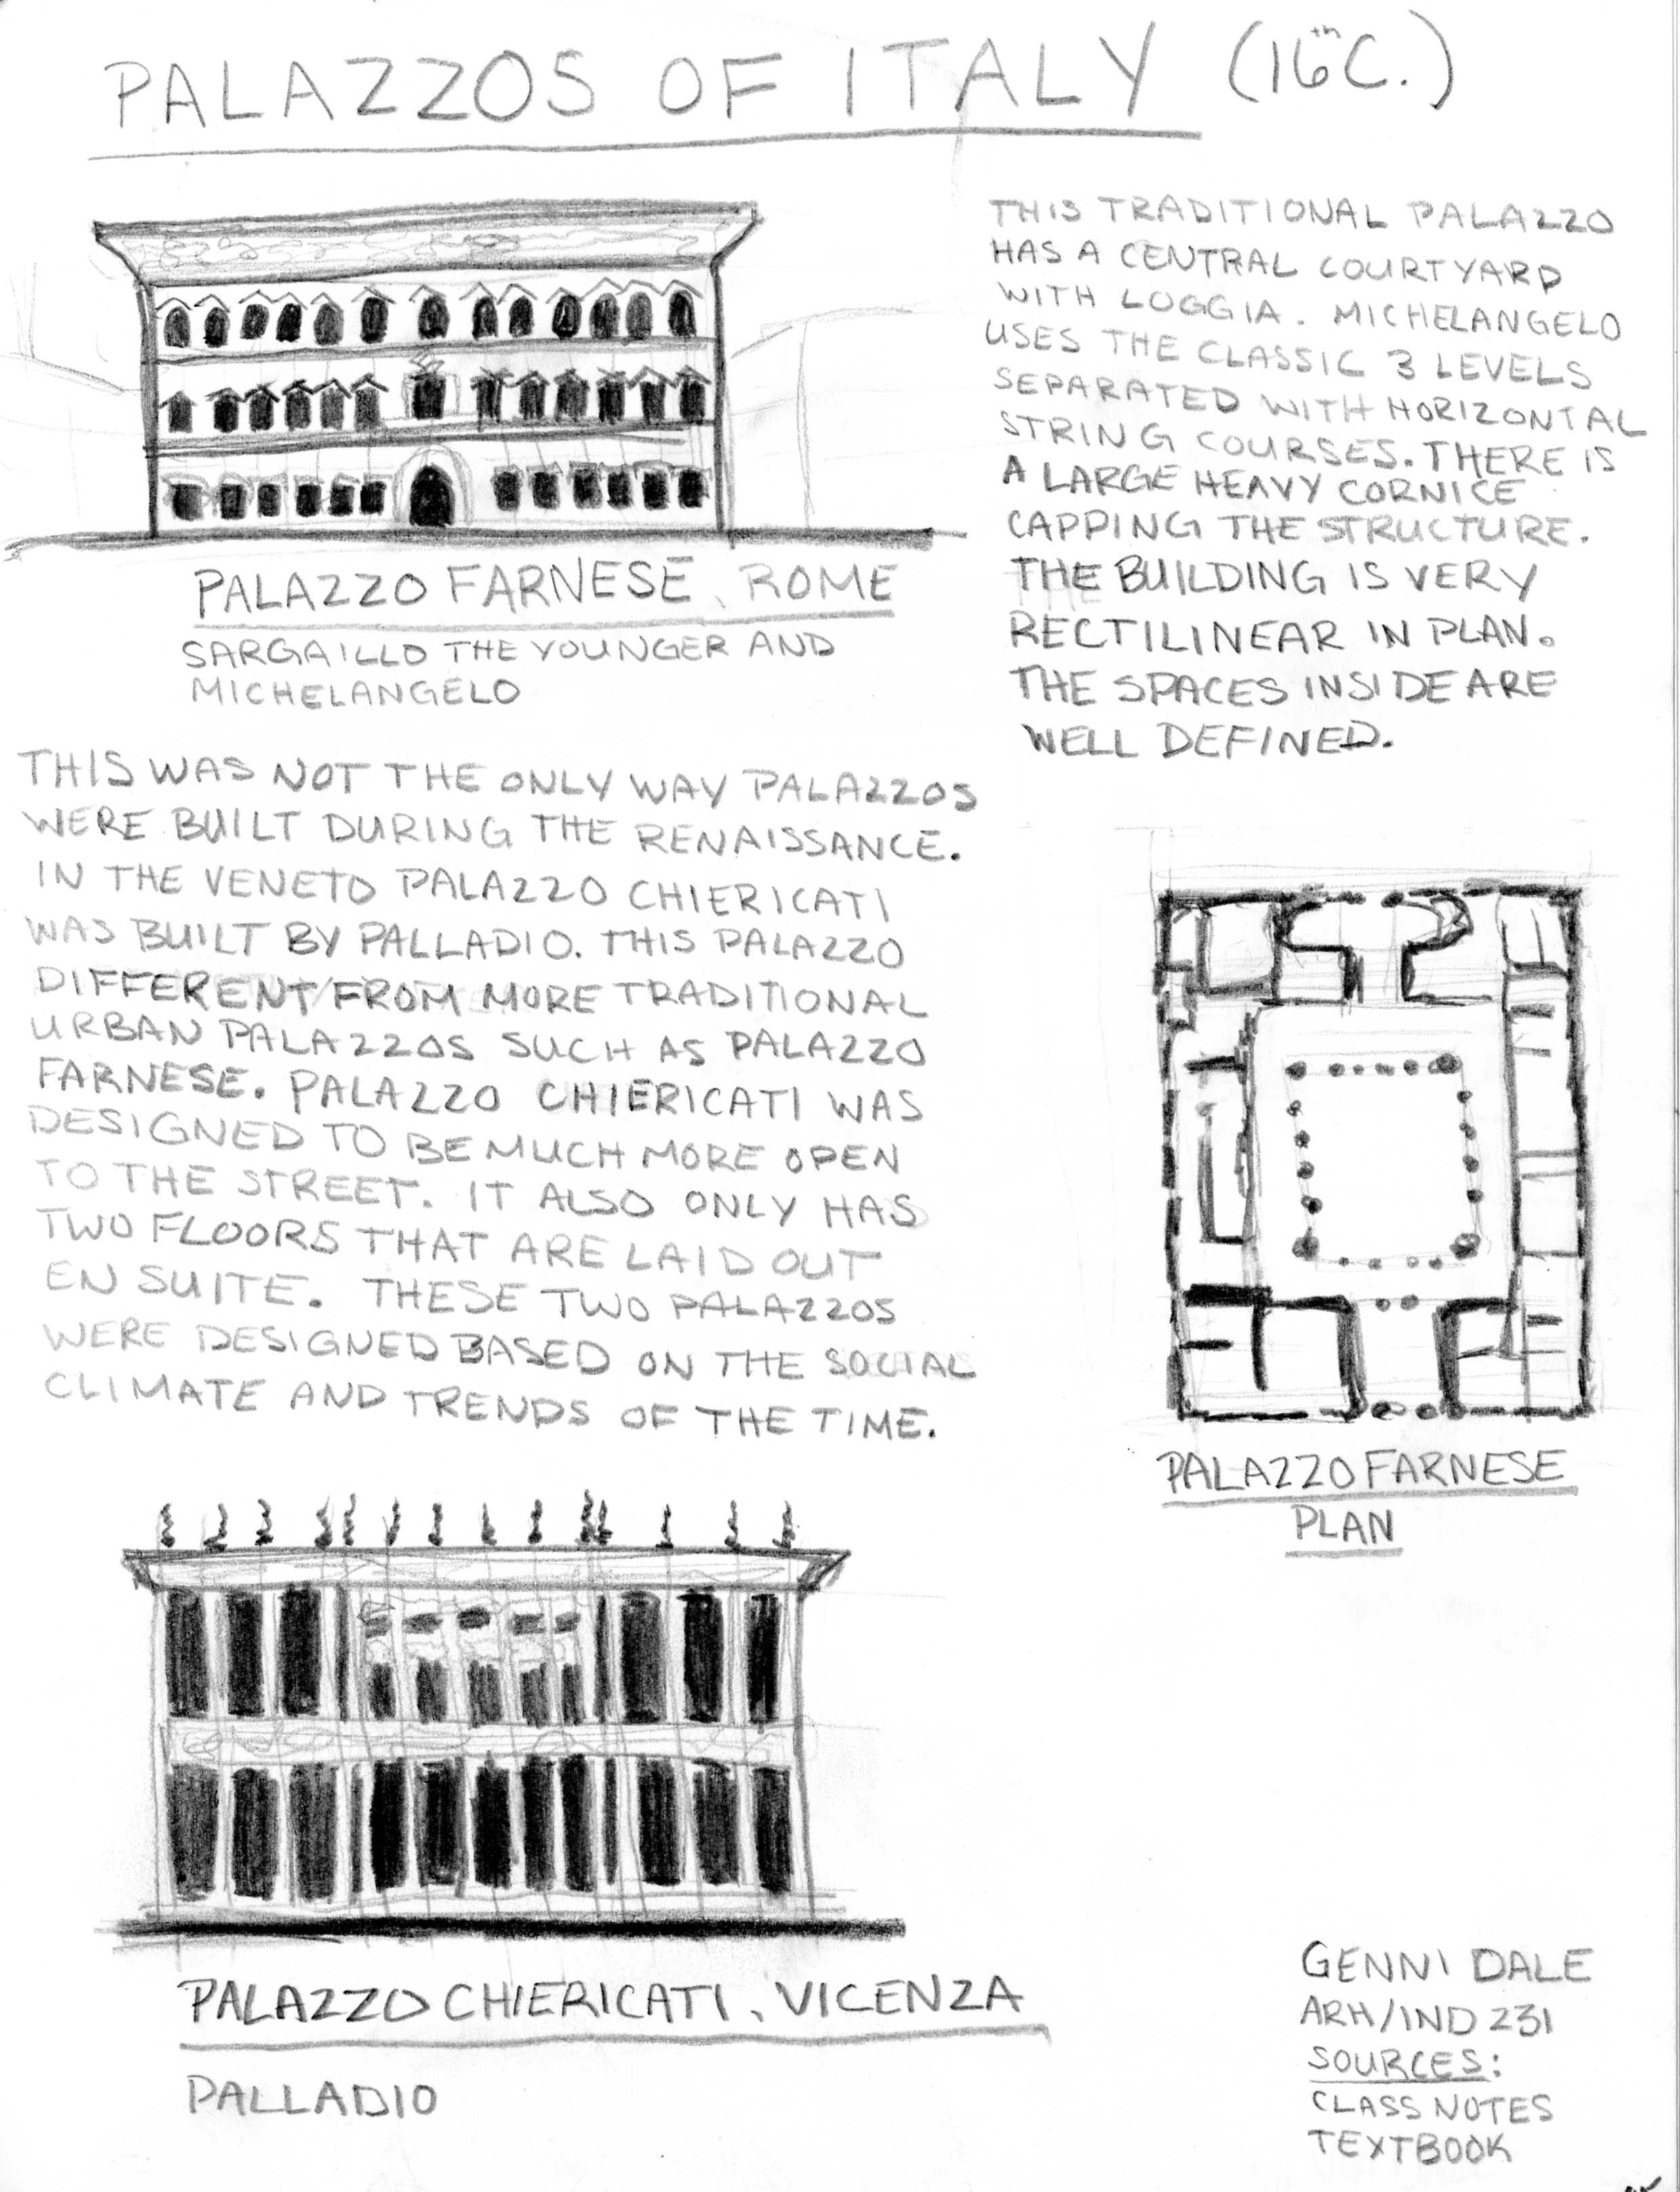 PALAZZOS OF ITALY (16th C.)
THIS TRADITIONAL PALAZZO
HAS A CENTRAL COURTYARD
WITH LOGGIA. MICHELANGELO
USES THE CLASSIC 3 LEVELS
SEPARATED WITH HORIZONTAL
STRING COURSES. THERE IS
A LARGE HEAVY CORNICE
CAPPING THE STRUCTURE.
THE BUILDING IS VERY
RECTILINEAR IN PLAN.
THE SPACES INSIDE ARE
WELL DEFINED.
PALAZZO FARNESE, ROME
SARGAILLO THE YOUNGER AND
MICHELANGELO
THIS WAS NOT THE ONLY WAY PALAZZOS
WERE BUILT DURING THE RENAISSANCE.
IN THE VENETO PALAZZO CHIERICATI
WAS BUILT BY PALLADIO. THIS PALAZZO
DIFFERENT FROM MORE TRADITIONAL
URBAN PALAZZOS SUCH AS PALAZZO
FARNESE. PALAZZO CHIERICATI WAS
DESIGNED TO BE MUCH MORE OPEN
TO THE STREET. IT ALSO ONLY HAS
TWO FLOORS THAT ARE LAID OUT
EN SUITE. THESE TWO PALAZZOS
WERE DESIGNED BASED ON THE SOCIAL
CLIMATE AND TRENDS OF THE TIME.
PALAZZO FARNESE
PLAN
PALAZZO CHIERICATI, VICENZA
PALLADIO
GENNI DALE
ARH/IND 231
SOURCES:
CLASS NOTES
TEXTBOOK